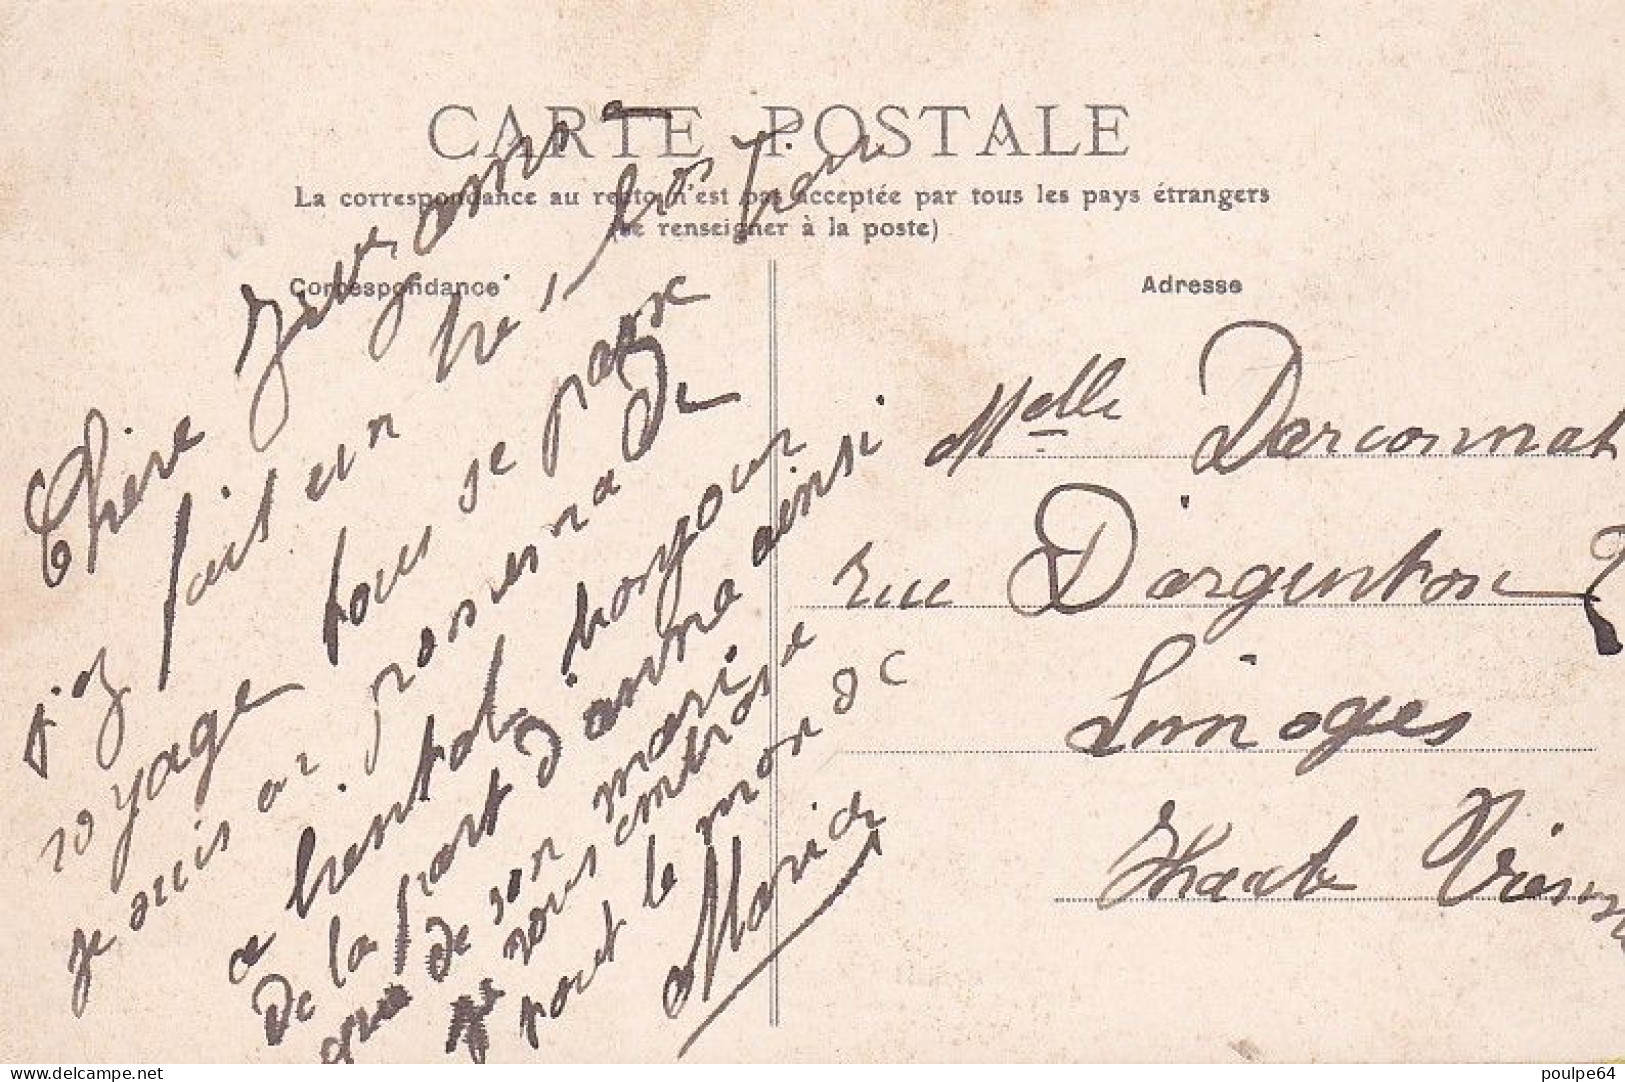 CARTE POSTALE
La correspondance au recto n'est pas acceptée par tous les pays étrangers
(se renseigner à la poste)
Correspondance
Adresse
Chère
j'ai fait un très bon
voyage tous se passe
je suis
bonjour
de la part d'anna ainsi
que de son mari
je vous embrasse
tout le monde
Maria
Melle Darconnat
rue D'argenton
Limoges
Haute Vienne
www.delcampe.net
poulpe64